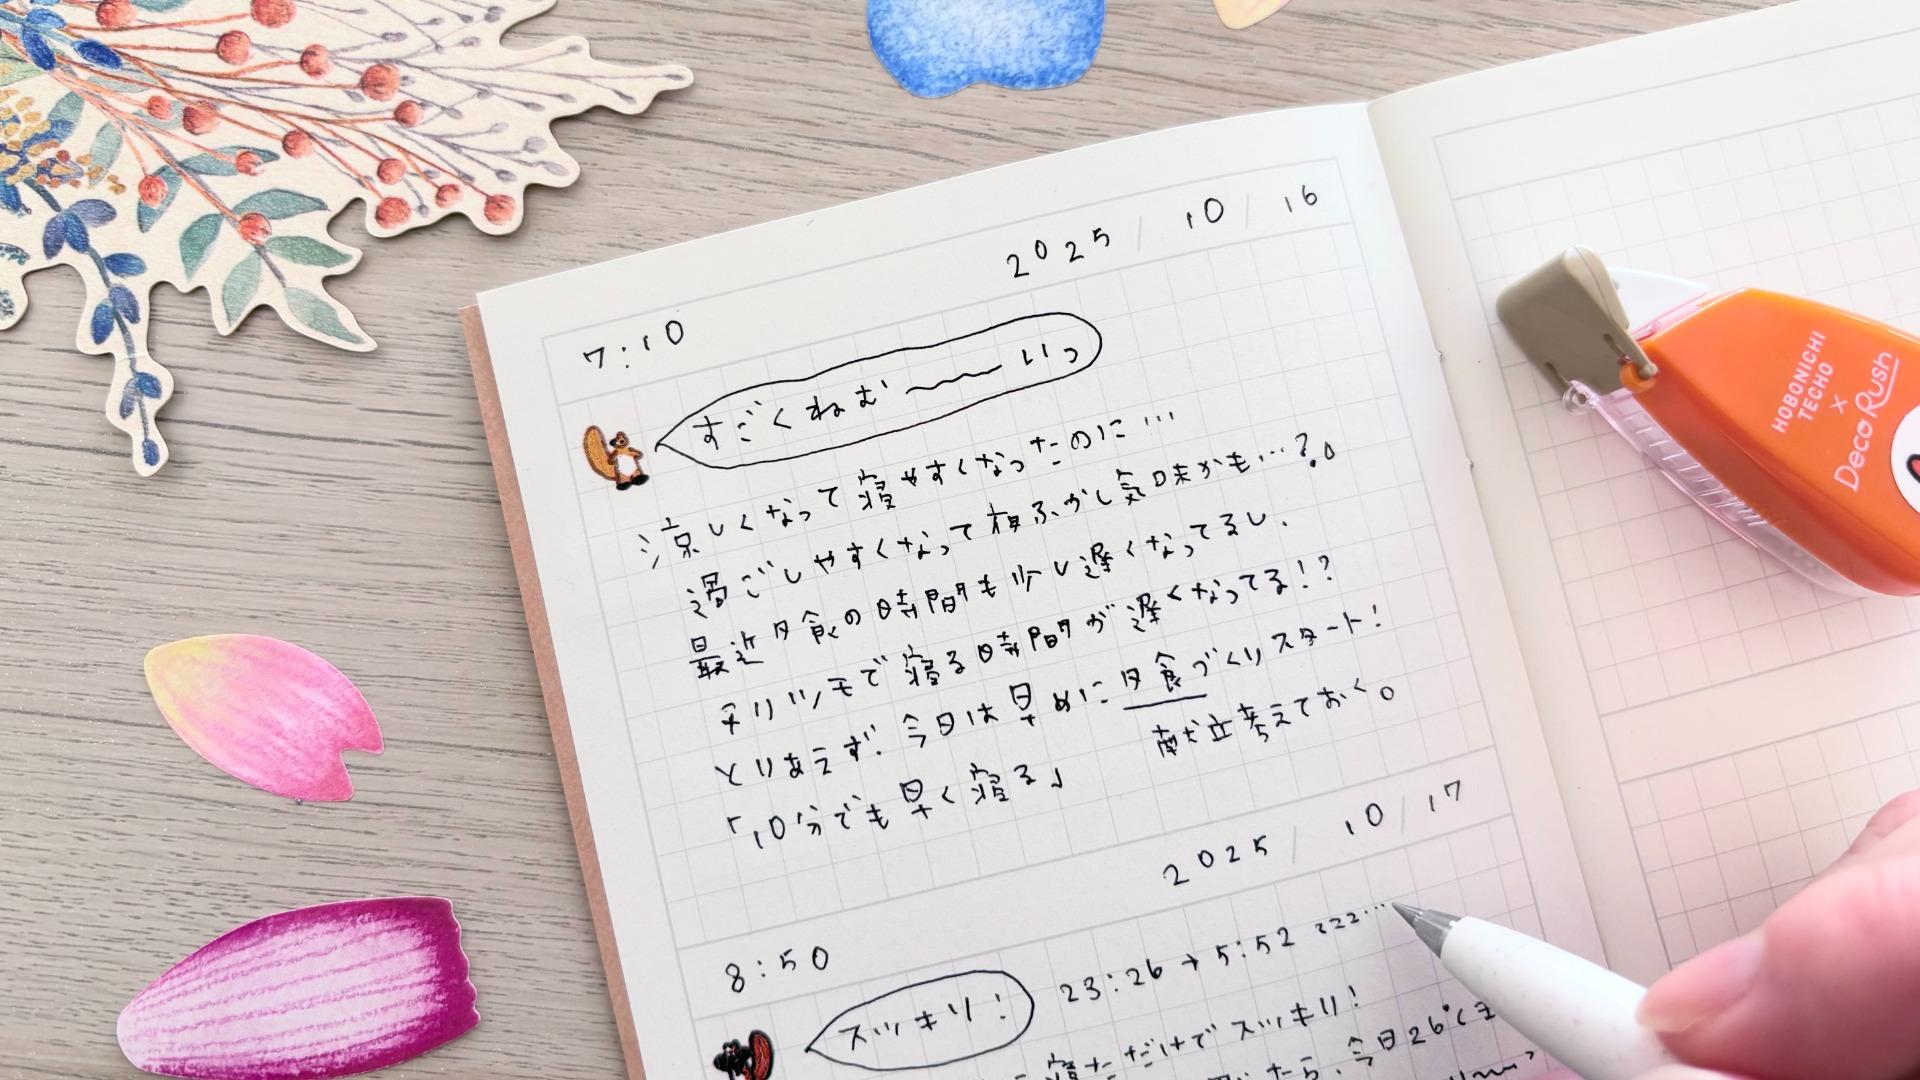 2025/10/16
7:10
すごくねむ〜〜〜いっ
涼しくなって寝やすくなったのに…
過ごしやすくなって夜ふかし気味かも…?。
最近夕食の時間も少し遅くなってるし、
チリツモで寝る時間が遅くなってる!?
とりあえず、今日は早めに夕食づくりスタート!
献立考えておく。
「10分でも早く寝る」
2025/10/17
8:50
スッキリ!
23:26→5:52 zzz…
寝ただけでスッキリ!
たら、今日26℃ま
HOBONICHI
TECHO
×
DecoRush